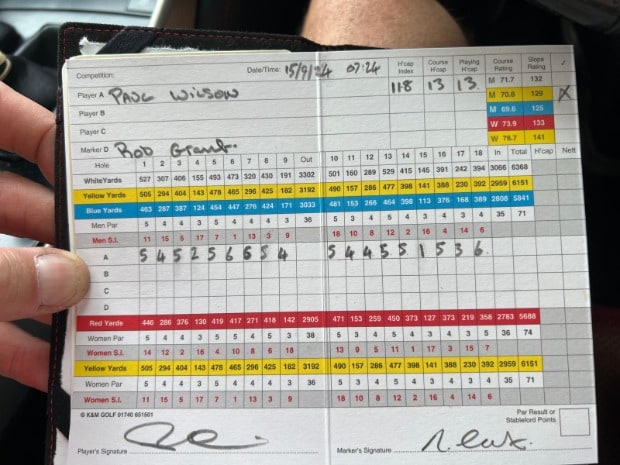 Competition: Date/Time: 15/9/24 07:24 H'cap Index Course H'cap Playing H'cap Course Rating Slope Rating ✓
Player A PAUL WILSON 11.8 13 13 M 71.7 132
Player B M 70.8 129 X
Player C M 69.6 125
W 73.9 133
Marker D ROB Grant. W 76.7 141
Hole 1 2 3 4 5 6 7 8 9 Out 10 11 12 13 14 15 16 17 18 In Total H'cap Nett
White Yards 527 307 406 155 493 473 320 430 191 3302 501 160 289 529 415 145 391 242 394 3066 6368
Yellow Yards 505 294 404 143 478 465 296 425 182 3192 490 157 286 477 398 141 388 230 392 2959 6151
Blue Yards 463 287 387 124 454 447 276 424 171 3033 481 153 266 464 398 113 376 168 389 2808 5841
Men Par 5 4 4 3 5 4 4 4 3 36 5 3 4 5 4 3 4 3 4 35 71
Men S.I. 11 15 5 17 7 1 13 3 9 18 10 8 12 2 16 4 14 6
A 5 4 5 2 5 6 6 5 4 5 4 4 5 5 1 5 3 6
B
C
D
Red Yards 446 286 376 130 419 417 271 418 142 2905 471 153 259 450 373 127 373 219 358 2783 5688
Women Par 5 4 4 3 5 5 4 5 3 38 5 3 4 5 4 3 4 3 5 36 74
Women S.I. 14 12 2 16 4 10 8 6 18 13 9 5 11 1 17 3 15 7
Yellow Yards 505 294 404 143 478 465 296 425 182 3192 490 157 286 477 398 141 388 230 392 2959 6151
Women Par 5 4 4 3 5 4 4 4 3 36 5 3 4 5 4 3 4 3 4 35 71
Women S.I. 11 15 5 17 7 1 13 3 9 18 10 8 12 2 16 4 14 6
© K&M GOLF 01740 651501
Par Result or Stableford Points
Player's Signature Marker's Signature